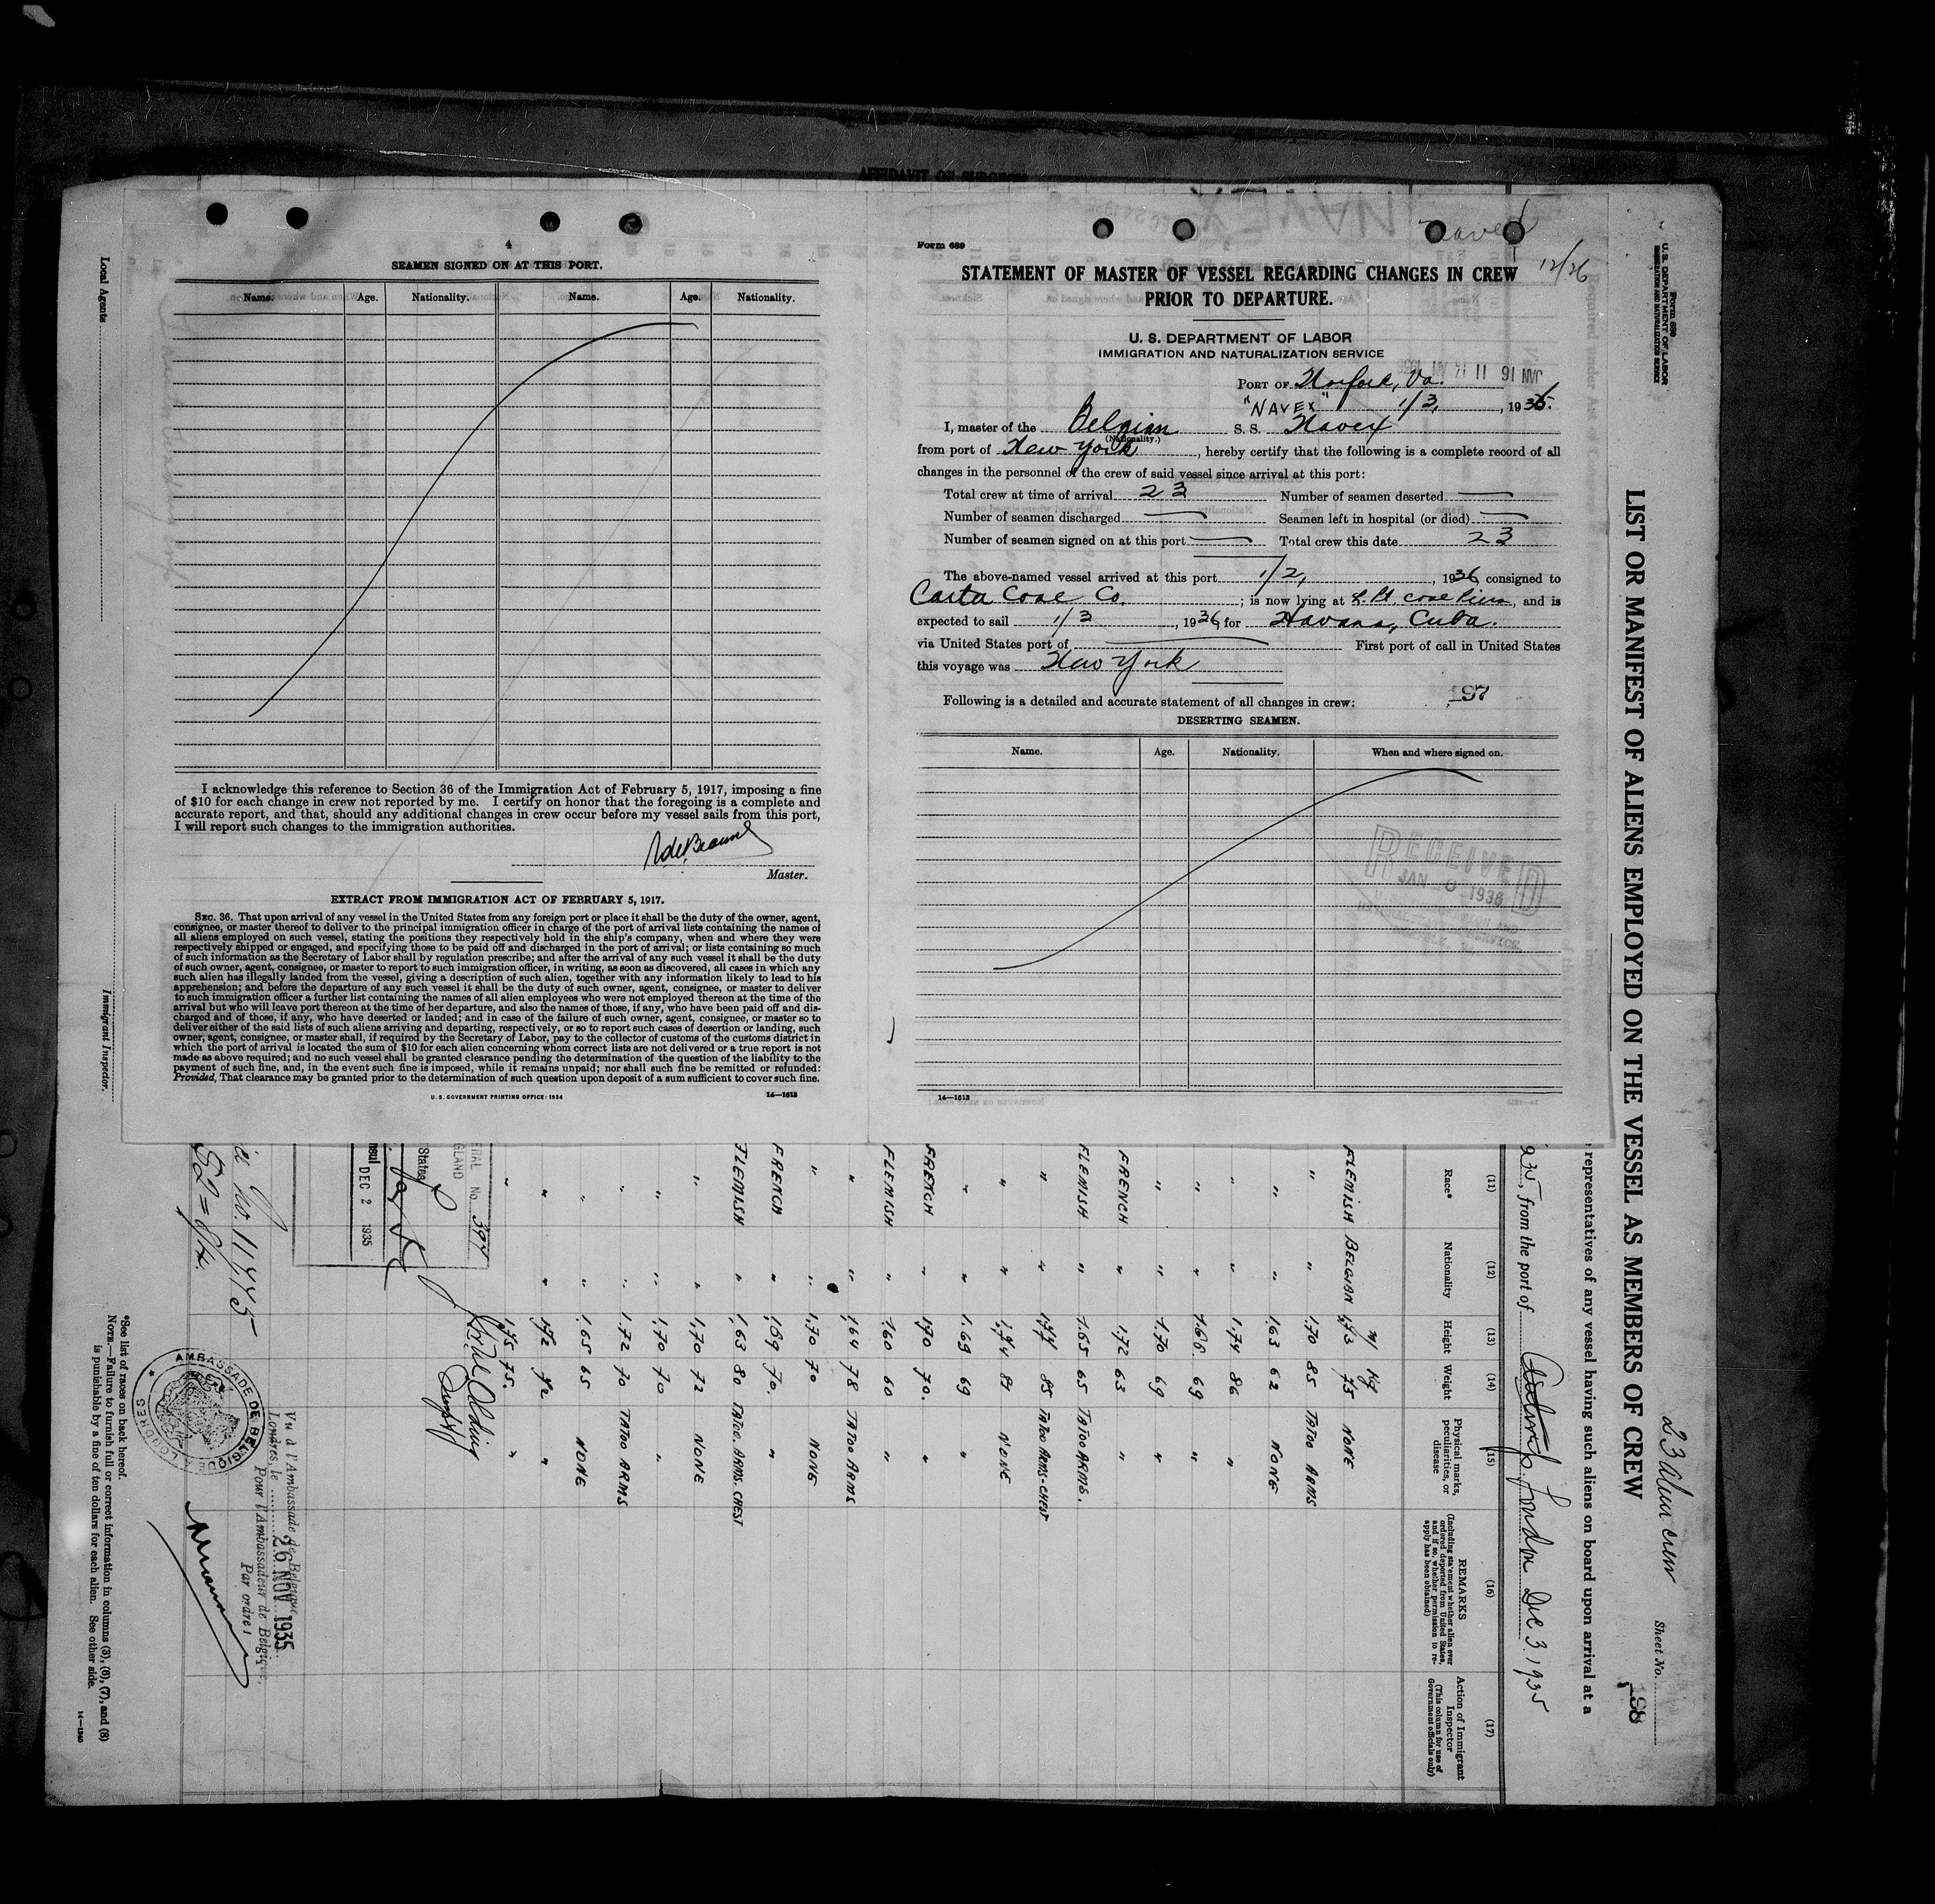 AFFIDAVIT OF SURGEON
4
SEAMEN SIGNED ON AT THIS PORT.
Name. Age. Nationality. Name. Age. Nationality.
I acknowledge this reference to Section 36 of the Immigration Act of February 5, 1917, imposing a fine
of $10 for each change in crew not reported by me. I certify on honor that the foregoing is a complete and
accurate report, and that, should any additional changes in crew occur before my vessel sails from this port,
I will report such changes to the immigration authorities.
Master.
EXTRACT FROM IMMIGRATION ACT OF FEBRUARY 5, 1917.
SEC. 36. That upon arrival of any vessel in the United States from any foreign port or place it shall be the duty of the owner, agent,
consignee, or master thereof to deliver to the principal immigration officer in charge of the port of arrival lists containing the names of
all aliens employed on such vessel, stating the positions they respectively hold in the ship's company, when and where they were
respectively shipped or engaged, and specifying those to be paid off and discharged in the port of arrival; or lists containing so much
of such information as the Secretary of Labor shall by regulation prescribe; and after the arrival of any such vessel it shall be the duty
of such owner, agent, consignee, or master to report to such immigration officer, in writing, as soon as discovered, all cases in which any
such alien has illegally landed from the vessel, giving a description of such alien, together with any information likely to lead to his
apprehension; and before the departure of any such vessel it shall be the duty of such owner, agent, consignee, or master to deliver
to such immigration officer a further list containing the names of all alien employees who were not employed thereon at the time of the
arrival but who will leave port thereon at the time of her departure, and also the names of those, if any, who have been paid off and dis-
charged and of those, if any, who have deserted or landed; and in case of the failure of such owner, agent, consignee, or master so to
deliver either of the said lists of such aliens arriving and departing, respectively, or so to report such cases of desertion or landing, such
owner, agent, consignee, or master shall, if required by the Secretary of Labor, pay to the collector of customs of the customs district in
which the port of arrival is located the sum of $10 for each alien concerning whom correct lists are not delivered or a true report is not
made as above required; and no such vessel shall be granted clearance pending the determination of the question of the liability to the
payment of such fine, and, in the event such fine is imposed, while it remains unpaid; nor shall such fine be remitted or refunded:
Provided, That clearance may be granted prior to the determination of such question upon deposit of a sum sufficient to cover such fine.
U. S. GOVERNMENT PRINTING OFFICE: 1934 14—1613
Form 689
12/26
STATEMENT OF MASTER OF VESSEL REGARDING CHANGES IN CREW
PRIOR TO DEPARTURE.
U. S. DEPARTMENT OF LABOR
IMMIGRATION AND NATURALIZATION SERVICE
PORT OF Norfolk, Va.
"NAVEX" 1/3, 1936.
I, master of the Belgian S. S. Navex
(Nationality.)
from port of New York, hereby certify that the following is a complete record of all
changes in the personnel of the crew of said vessel since arrival at this port:
Total crew at time of arrival 23 Number of seamen deserted —
Number of seamen discharged — Seamen left in hospital (or died) —
Number of seamen signed on at this port — Total crew this date 23
The above-named vessel arrived at this port 1/2, 1936, consigned to
Coal Co.; is now lying at Coal Piers, and is
expected to sail 1/3, 1936, for Havana, Cuba.
via United States port of — First port of call in United States
this voyage was New York
Following is a detailed and accurate statement of all changes in crew: 197
DESERTING SEAMEN.
Name. Age. Nationality. When and where signed on.
RECEIVED
JAN 1936
14—1613
Form 689
U. S. DEPARTMENT OF LABOR
IMMIGRATION AND NATURALIZATION SERVICE
LIST OR MANIFEST OF ALIENS EMPLOYED ON THE VESSEL AS MEMBERS OF CREW
23 alien crew
Sheet No.
198
representatives of any vessel having such aliens on board upon arrival at a
935, from the port of London Dec 3. 1935
(11) (12) (13) (14) (15) (16) (17)
Race* Nationality Height Weight Physical marks, peculiarities, or disease
REMARKS
(Including statement whether alien ever ordered deported from United States, and if so, whether permission to re-apply has been obtained)
Action of Immigrant Inspector
(This column for use of Government officials only)
FLEMISH BELGIAN 1,73 75 NONE
" " 1.70 85 TATOO ARMS
" " 1.63 62 NONE
" " 1.74 86 "
" " 1.66 69 "
" " 1.70 69 "
FRENCH " 1.72 63 "
FLEMISH " 1.65 65 TATOO ARMS.
" " 1.77 85 TATOO ARMS-CHEST
" " 1.74 81 NONE
" " 1.69 69 "
FRENCH " 1.70 70. "
FLEMISH " 1.60 60 "
" " 1.64 78 TATOO ARMS
" " 1.70 70 NONE
FRENCH " 1.69 70. "
FLEMISH " 1,63 80 TATOO. ARMS. CHEST
" 1,70 72 NONE
" " 1,70 70 "
" " 1.72 70 TATOO ARMS
" " 1.65 65 NONE
" " 1.72 72 "
" 1.75 75. "
No. 397
DEC 2 1935
No. 11475
AMBASSADE DE BELGIQUE
LONDRES
Vu à l'Ambassade de Belgique
Londres, le 26 NOV 1935
Pour l'Ambassadeur de Belgique,
Par ordre:
*See list of races on back hereof.
NOTE.—Failure to furnish full or correct information in columns (3), (6), (7), and (8)
is punishable by a fine of ten dollars for each alien. See other side.
14—1240
Local Agents
Immigrant Inspector.